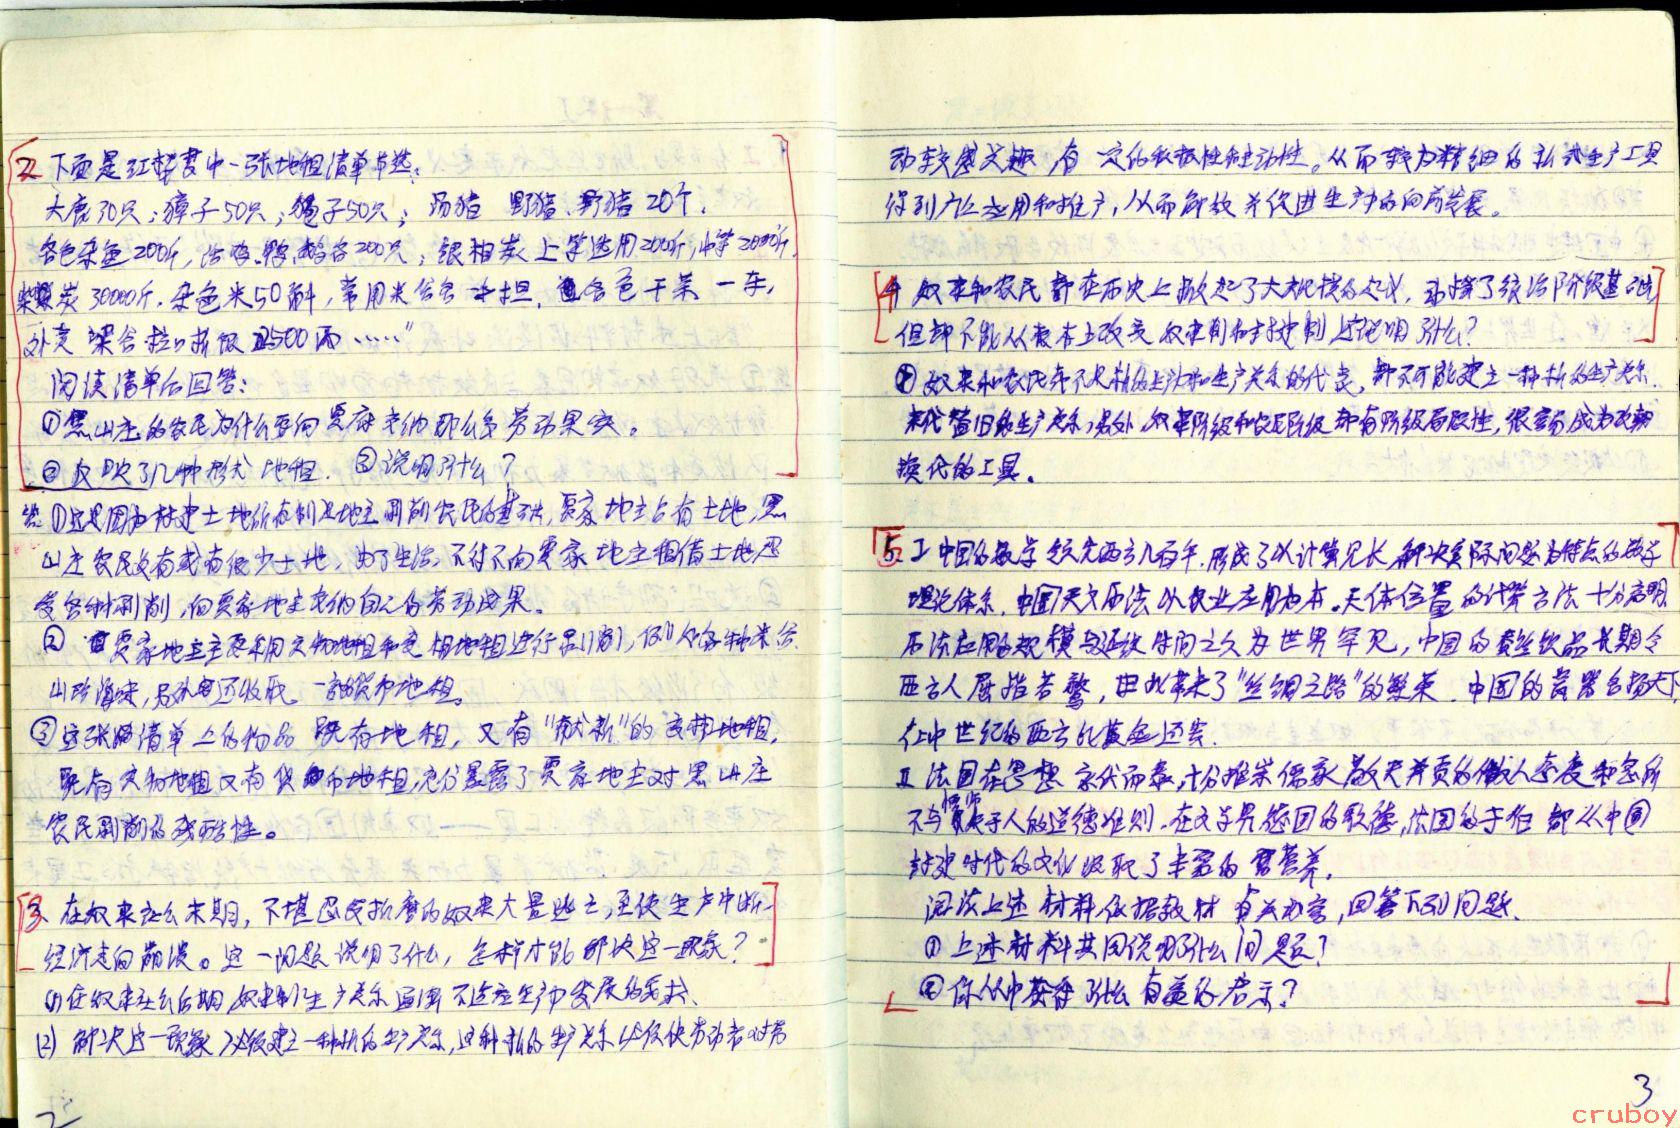 2. 下面是红楼梦中一张地租清单节选:
大鹿30只;獐子50只;狍子50只;汤猪 野猪、野猪20个,
各色杂鱼200斤,活鸡、鸭、鹅各200只;银相炭上等选用200斤,中等2000斤,
柴炭30000斤,杂色米50斛,常用米 担,各色干菜一车,
外卖粱谷 折银 500两……"
阅读清单后回答:
①黑山庄的农民为什么要向贾府交纳那么多劳动果实。
②反映了几种形式地租. ③说明了什么?
答:①这是因为封建土地所有制是地主剥削农民的基础,贾家地主占有土地,黑
山庄农民没有或有很少土地,为了生活,不得不向贾家地主租借土地忍
受各种剥削,向贾家地主交纳自己的劳动成果。
② 贾家地主主要采用实物地租 进行剥削,
山珍海味,另外还收取一部货币地租。
③这张清单上的物品既有地租,又有"献新"的 地租,
既有实物地租又有货币地租,充分暴露了贾家地主对黑山庄
农民剥削的残酷性。
3. 在奴隶社会末期,不堪忍受折磨的奴隶大量逃亡,至使生产中断,
经济走向崩溃。这一问题说明了什么,怎样才能解决这一现象?
(1)在奴隶社会后期,奴隶制生产关系 不适应生产力发展的要求、
(2) 解决这一现象必须建立一种新的生产关系,这种新的生产关系必须使劳动者对劳
2
动较感兴趣,有一定的积极性和主动性。从而较为精细的 生产工具
得到广泛应用和推广,从而解放并促进生产力向前发展。
4. 奴隶和农民都在历史上掀起了大规模的起义,动摇了统治阶级基础
但却不能从根本上改变奴隶制和封建制,这说明了什么?
①奴隶和农民并不是新的生产力和生产关系的代表,都不可能建立一种新的生产关系
来代替旧的生产关系,另外,奴隶阶级和农民阶级都有阶级局限性,很容易成为改朝
换代的工具。
5. I 中国的数学领先西方几百年,形成了以计算见长,解决实际问题为特点的数学
理论体系,中国天文历法以农业应用为本。天体位置的计算方法十分高明
历法应用的规模与延续时间之久为世界罕见,中国的蚕丝织品长期令
西方人 若鹜,由此带来了"丝绸之路"的繁荣.中国的瓷器名扬天下
在中世纪的西方比黄金还贵.
II 法国在思想家伏而泰,十分推崇儒家敬天 的做人态度和忽所
不与 于人的道德准则.在文学界德国的歌德,法国的于 都从中国
封建时代的文化吸取了丰富的营养.
阅读上述材料依据教材有关内容,回答下列问题.
①上述材料共同说明了什么问题?
②你从中获得了什么有益的启示?
3
cruboy